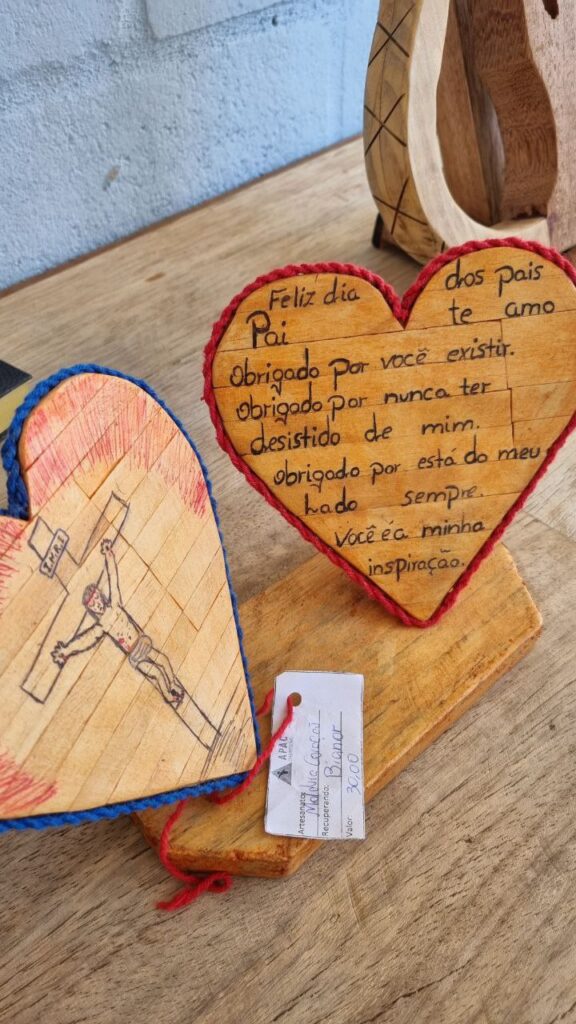 Feliz dia dos pais
Pai te amo
Obrigado por você existir.
obrigado por nunca ter
desistido de mim.
obrigado por está do meu
Lado sempre.
você é a minha
inspiração.
I.M.R.I
APAC
Artesanato:
Recuperando: Bianor
Valor: 30,00